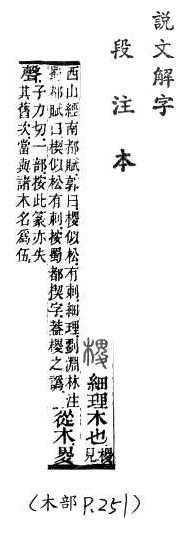 說文解字
段注本
㮨 細理木也 㮨見
西山經南都賦郭曰㮨似松有刺細理劉淵林注
蜀都賦曰楔似松有刺按蜀都楔字葢㮨之譌
從木畟
聲
子力切一部按此篆亦失
其舊次當與諸木名爲伍
(木部 P.251)